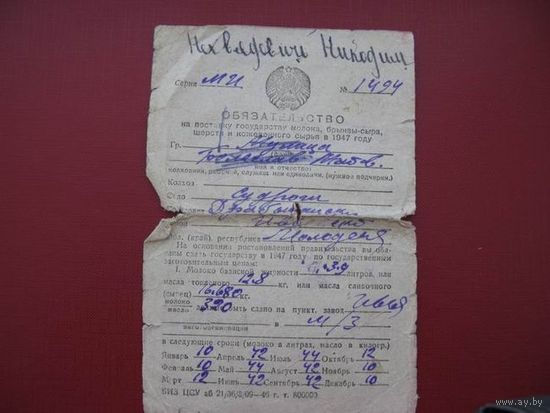 Нехвядович Никодим
Серия МИ № 1494
ОБЯЗАТЕЛЬСТВО
на поставку государству молока, брынзы-сыра,
шерсти и кожевенного сырья в 1947 году
Гр.
имя и отчество
колхозник, рабочий, служащ. или единоличн. (нужное подчерки.)
Колхоз
Село Судроги
обл. (край), республика Молодечн
На основании постановлений правительства вы обя-
заны сдать государству в 1947 году по государственным
заготовительным ценам:
1. Молоко базисной жирности 3,9 литров, или
масла топленого 12,8 кг. или масла сливочного
кг.
молоко
масло 390 должно быть сдано на пункт, завод Ивья
М/З
заготорганизации
в следующие сроки (молоко в литрах, масло в килогр.)
Январь 10 Апрель 42 Июль 44 Октябрь 12
Февраль 10 Май 44 Август 42 Ноябрь 10
Март 12 Июнь 42 Сентябрь 42 Декабрь 10
БИЗ ЦСУ аб 21/36/3/09—46 г. т. 800000
www.ay.by